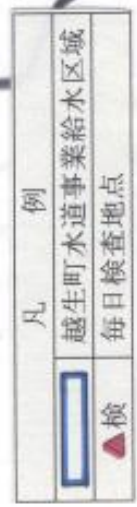 凡例
越生町水道事業給水区域
検 毎日検査地点